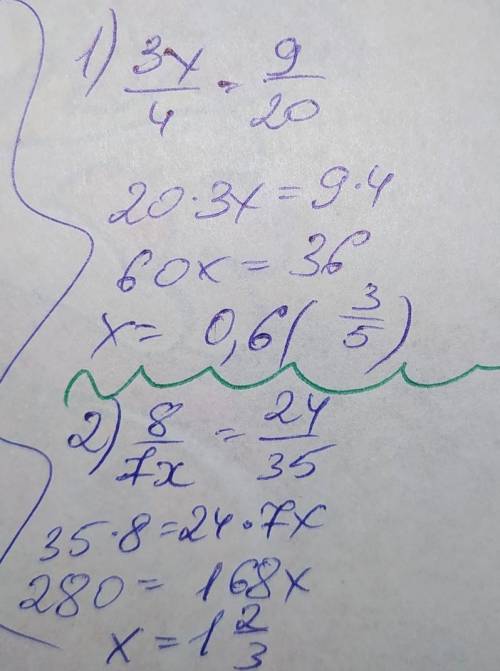 1) 3x/4 = 9/20
20·3x=9·4
60x=36
x= 0,6(3/5)
2) 8/7x = 24/35
35·8=24·7x
280=168x
x=1 2/3